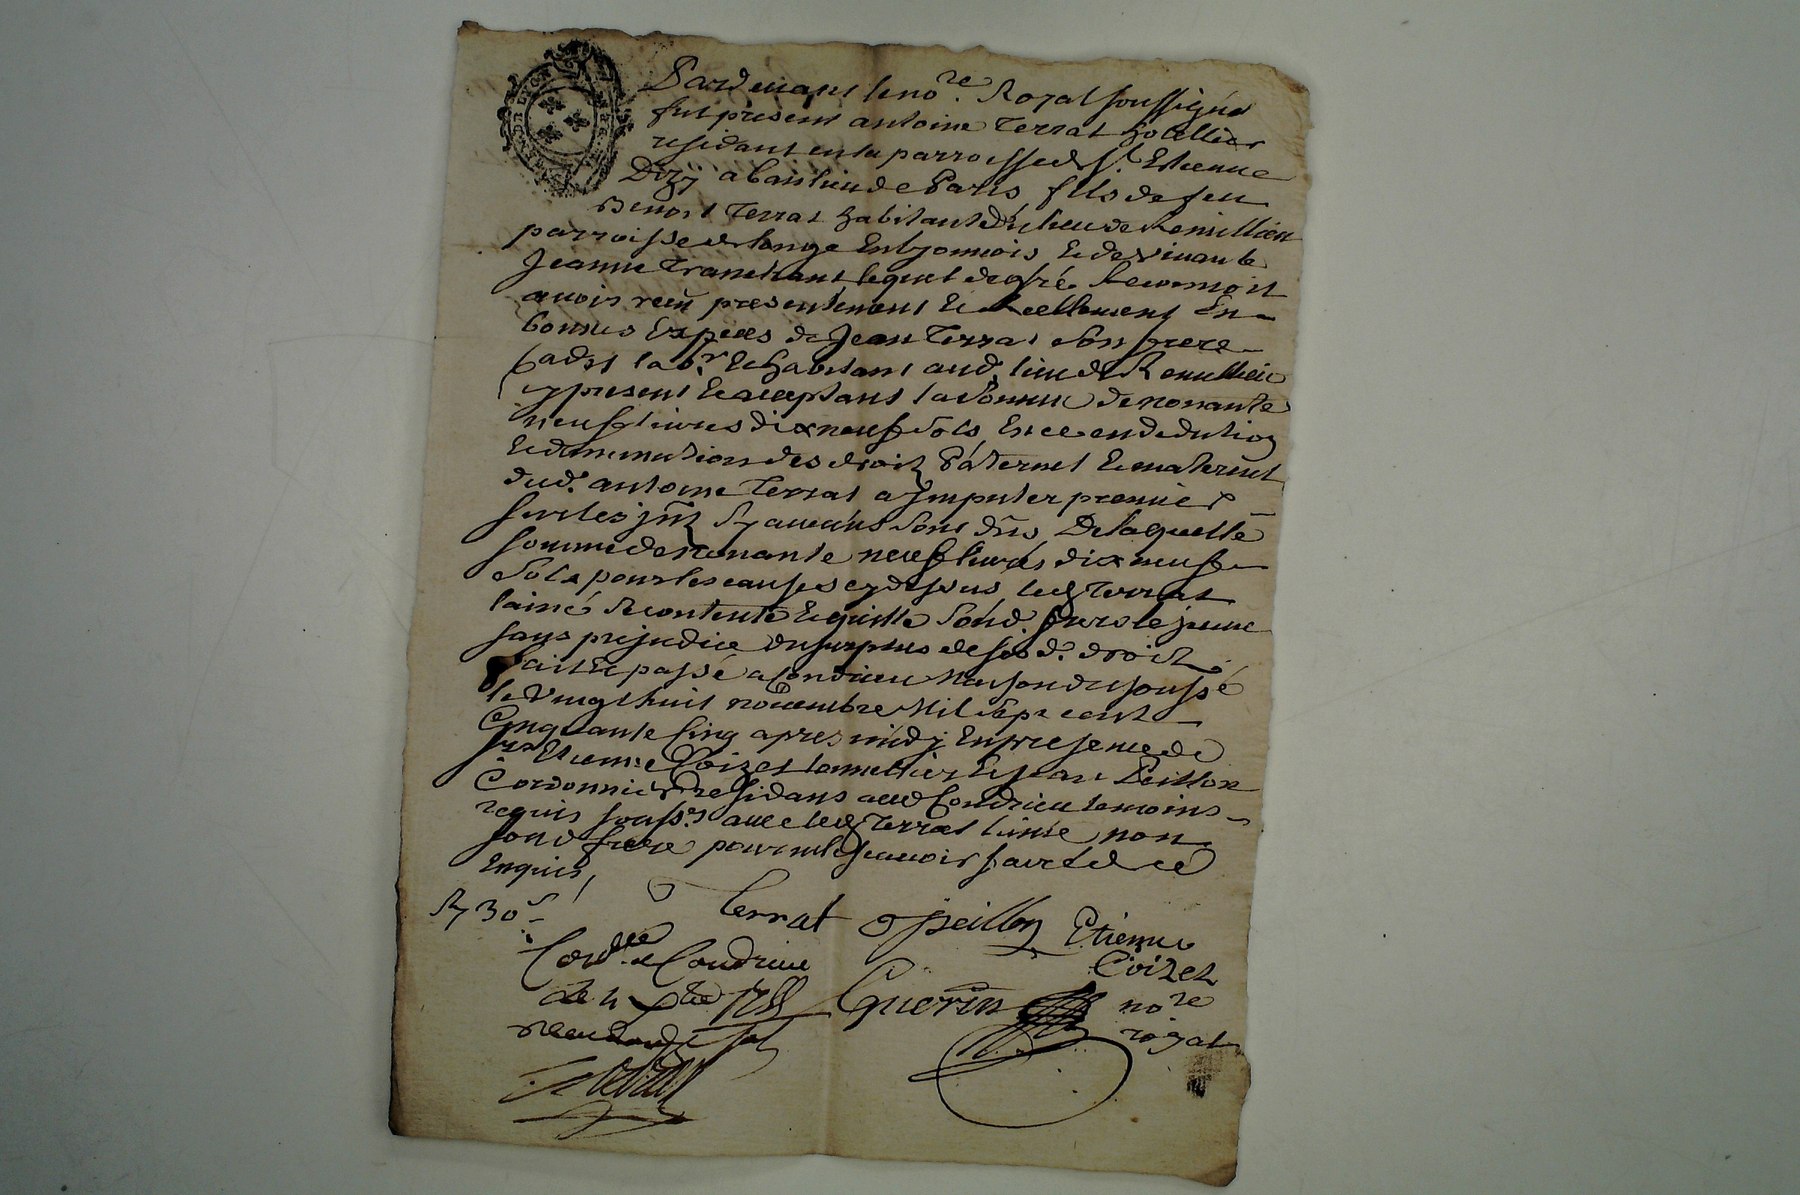 Pardevant le no.re Royal soussigné
fut présent antoine Terrat hotellier
residant en la parroisse de St. Estienne
a la banlieu de Paris, fils de feu
Benoist Terrat habitant du lieu de Remillieu
parroisse de longe En lyonnois, Et de vivante
Jeanne Tranchant lequel de gré Reconnoit
avoir reçu presentement Et Reellement En
bonnes Especes de Jean Terrat son frere
cadet lab.r Et habitant aud. lieu de Remillieu
cy present Et acceptant la somme de nonante
neuf livres dix neuf sols, Et ce en deduction
Et diminution des droits Paternel Et maternel
dud. antoine Terrat a Imputer premier
sur les jnts sy aucuns sont dûs, De laquelle
somme de nonante neuf livres dix neuf
sols pour les causes cy dessus, led Terrat
lainé se contente Et quitte sond. frere le jeune
sans prejudice du surplus de sesd. droits
fait Et passé a Condrieu Maison du soussé
le vingt huit novembre Mil sept cent
Cinquante Cinq apres midy En presence de
sr Etienne Coizet Et Jean Peillon
Cordonnier Residans aud Condrieu temoins
requis souss.és avec led Terrat lainé non
sond frere pour ne le scavoir faire de ce
Enquis,
30 s
Terrat Jpeillon Etienne
Coizet
Con.lle a Condrieu
le 4 Xbre 1755 Guerin no.re
royal